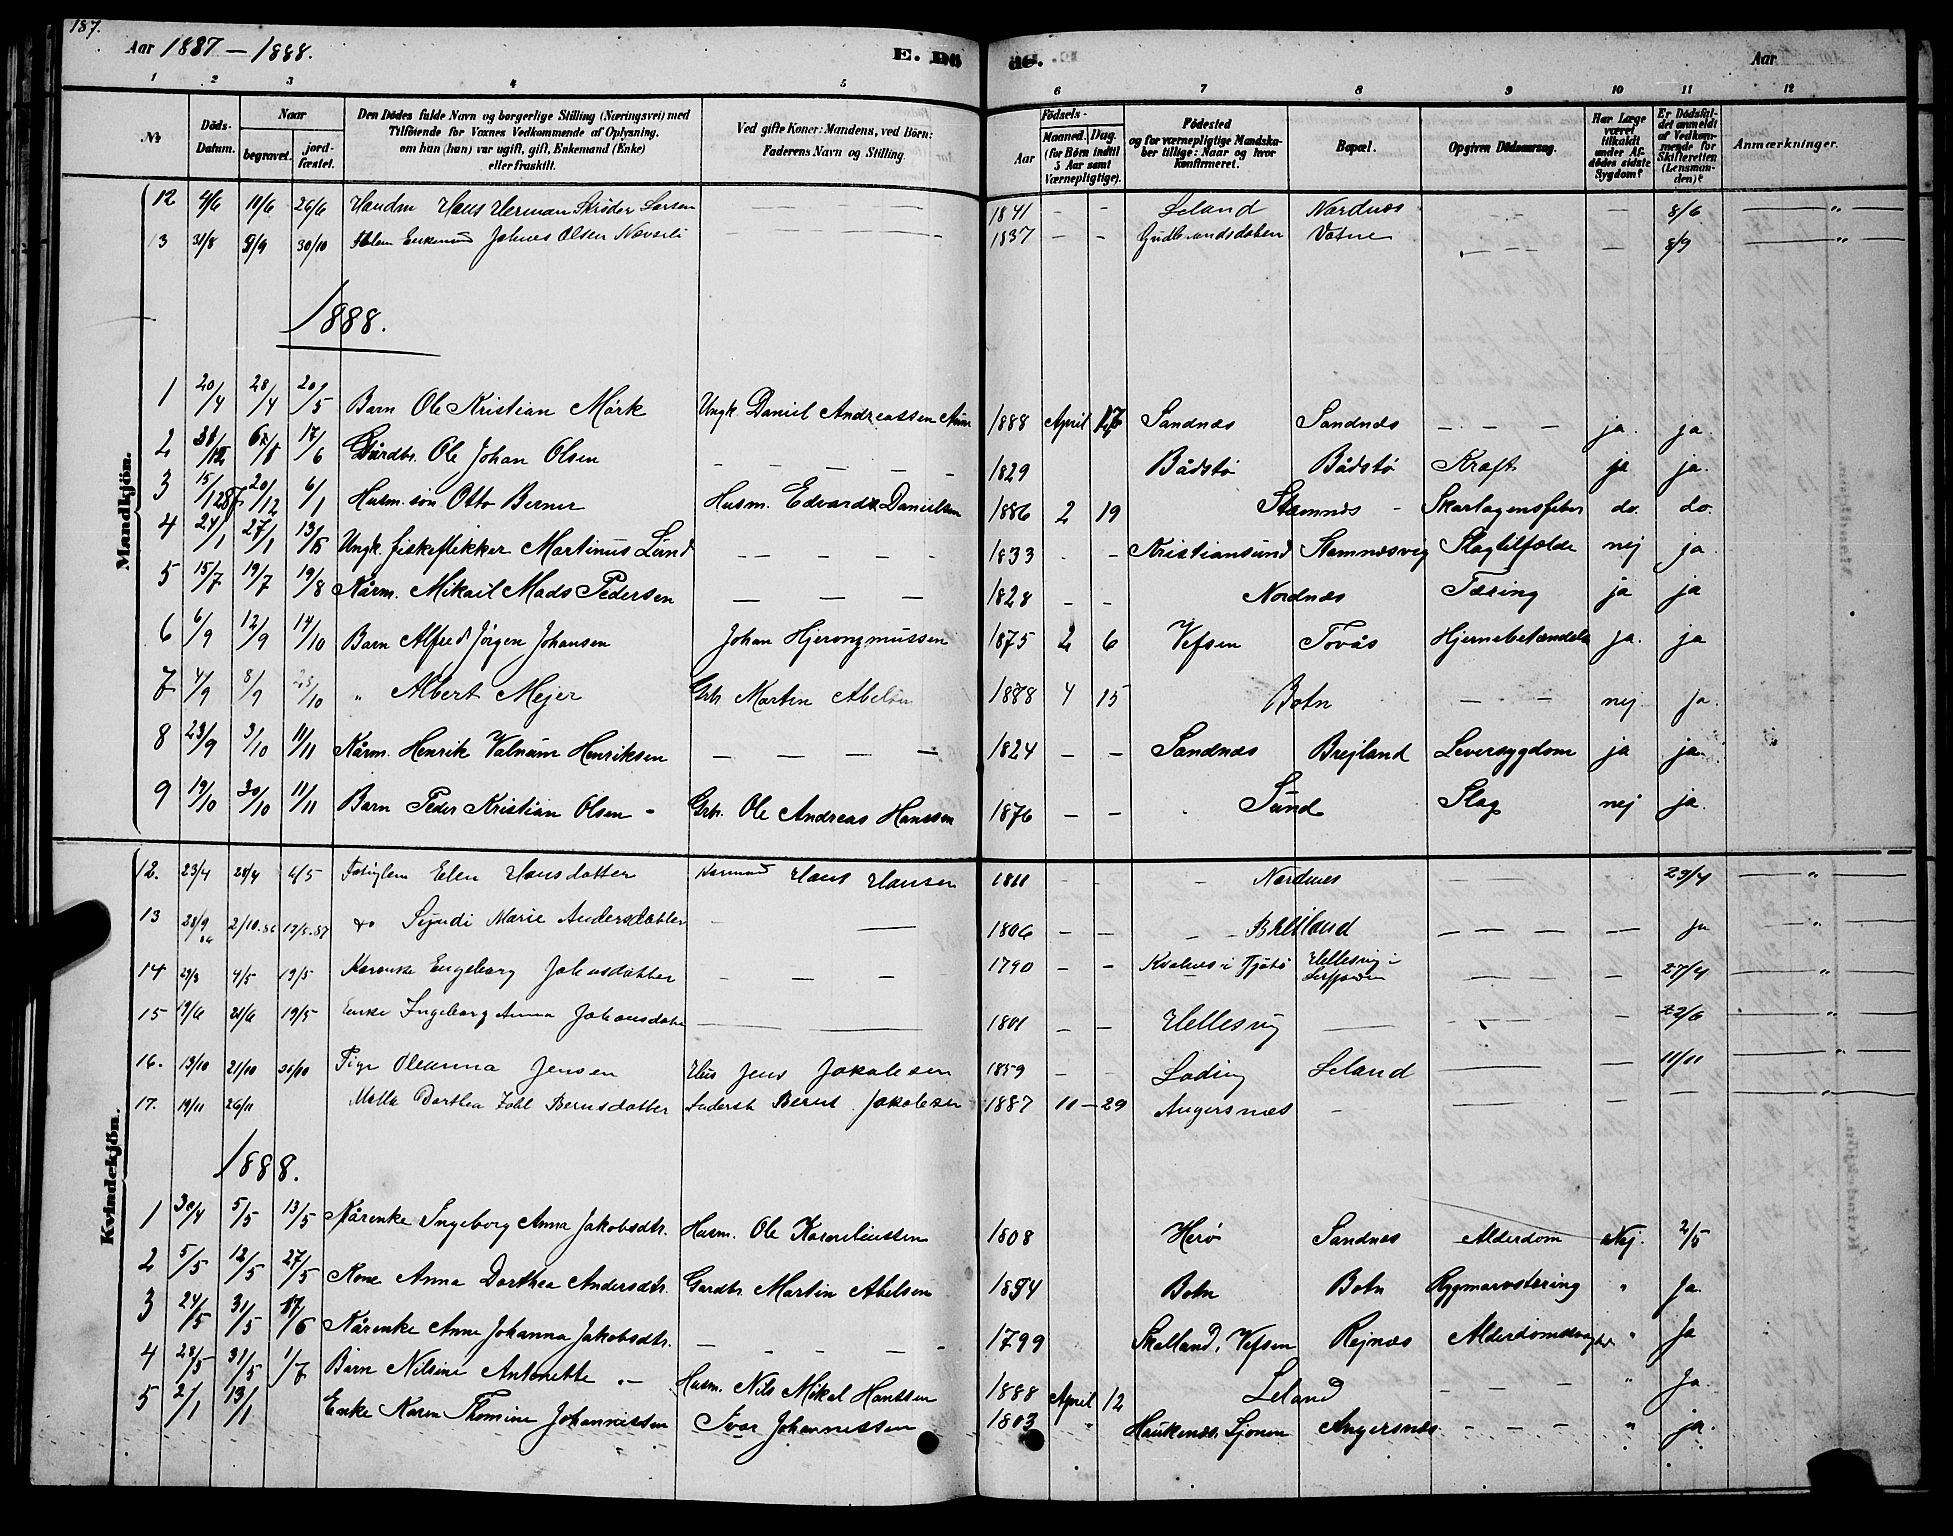 187.
Aar 1887 – 1888. E. Dö de. Aar
1 2 3 4 5 6 7 8 9 10 11 12
№ Döds-Datum. Naar begravet. jordfæstet. Den Dödes fulde Navn og borgerlige Stilling (Næringsvei) med Tilföiende for Voxnes Vedkommende af Oplysning, om han (hun) var ugift, gift, Enkemand (Enke) eller fraskilt. Ved gifte Koner: Mandens, ved Börn: Faderens Navn og Stilling. Födsels- Aar Maaned. Dag. (for Börn indtil 5 Aar samt Værnepligtige). Födested og for værnepligtige Mandskaber tillige: Naar og hvor konfirmeret. Bopæl. Opgiven Dödsaarsag. Har Læge været tilkaldt under Afdödes sidste Sygdom? Er Dödsfaldet anmeldt af Vedkommende for Skifteretten (Lensmanden)? Anmærkninger.
Mandkjön.
12 4/6 11/6 26/6 Hans Herman Schrøder Larsen — 1841 - - Leland Nordnes — 8/6 — „ —
13 31/8 9/9 30/10 Enkemand Johnes Olsen — 1837 - - Gudbrandsdalen — — 8/9 — „
1888.
1 20/4 28/4 20/5 Barn Ole Kristian Mörk Ungk. Daniel Andreassen 1888 April 17 Sandnæs Sandnæs — — — ja. ja.
2 17/6 Gårdbr. Ole Johan Olsen — — — — 1829 Bådstö Bådstö Kræft ja ja.
3 15/12 87 20/12 6/1 Husm. sön Otto Berner Husm. Edvard Danielsen 1886 2 19 Stamnæs - Skarlagensfeber do. do.
4 24/1 27/1 13/5 Ungk. fiskeflekker Martinus Lund — — — 1833 - - Kristiansund Stamnæsvig Slagtilfælde nej ja.
5 15/7 19/7 19/8 Kårm. Mikail Mads Pedersen — — — 1828 - - Nordnæs Tæring ja ja
6 6/9 12/9 14/10 Barn Alfred Jörgen Johansen Johan Hjeronymussen 1875 2 6 Vefsen Tovås Hjernebetændelse ja. ja
7 4/9 8/9 28/10 „ Albert Mejer Grb. Martin Abelsen 1888 4 15 Botn — — nej. ja.
8 23/9 3/10 11/11 Kårm. Henrik Valnum Henriksen — — — — 1824 — — Sandnæs Brejland Leversygdom ja ja.
9 19/10 30/10 11/11 Barn Peder Kristian Olsen - Grbr. Ole Andreas Hanssen 1876 — — Sund Slag nej ja.
Kvindekjön.
12. 23/4 28/4 6/5 Elen Hansdatter Hans Hansen 1811 - - - Nordnes 23/4 — „ —
13 28/9 86 2/10.86 19/5.87 do Marie Andersdatter - — 1806 — — Breiland — — — — ja — „ —
14 29/3 4/5 19/5 Engeborg Johnsdatter — — — 1790 - - i Tjötö Hellesvig i — — 27/4 — „
15 19/6 21/6 19/5 Enke Ingeborg Anna Johansdatter — — 1801 - - Hellesvig — — — 22/6 — „
16. 13/10 21/10 Pige Oleanna Jensen Jens Jakobsen 1859 - - Loding Leland — — 11/11 — „
17. 19/11 26/11 Dorthea Bernsdatter Bernt Jakobsen 1887 11 – 29 Angersnæs - — — — „
1888.
1 30/4 5/5 13/5 Kårenke Ingeborg Anna Jakobsdtr. Husm. Ole Korneliussen 1808 Herö Sandnæs Alderdom Nej. 2/5
2 5/5 12/5 27/5 Kone Anna Dorthea Andersdtr. Gårdbr. Martin Abelsen 1854 Botn Botn Rygmarvstæring „ Ja.
3 24/5 31/5 17/6 Kårenke Anne Johanna Jakobsdtr. — — — — 1799 Skelland, Vefsen Rejnæs Alderdomssvaghed „ Ja
4 28/5 31/5 1/7 Barn Nilsine Antonette „ — Husm. Nils Mikal Hanssen 1888 April 12 Leland — — — „ Ja.
5 2/1 13/1 Enke Karen Thomine Johannessen Ivar Johannessen 1803 „ Haukenæs, Sjonen Angersnæs — — — „ ja.